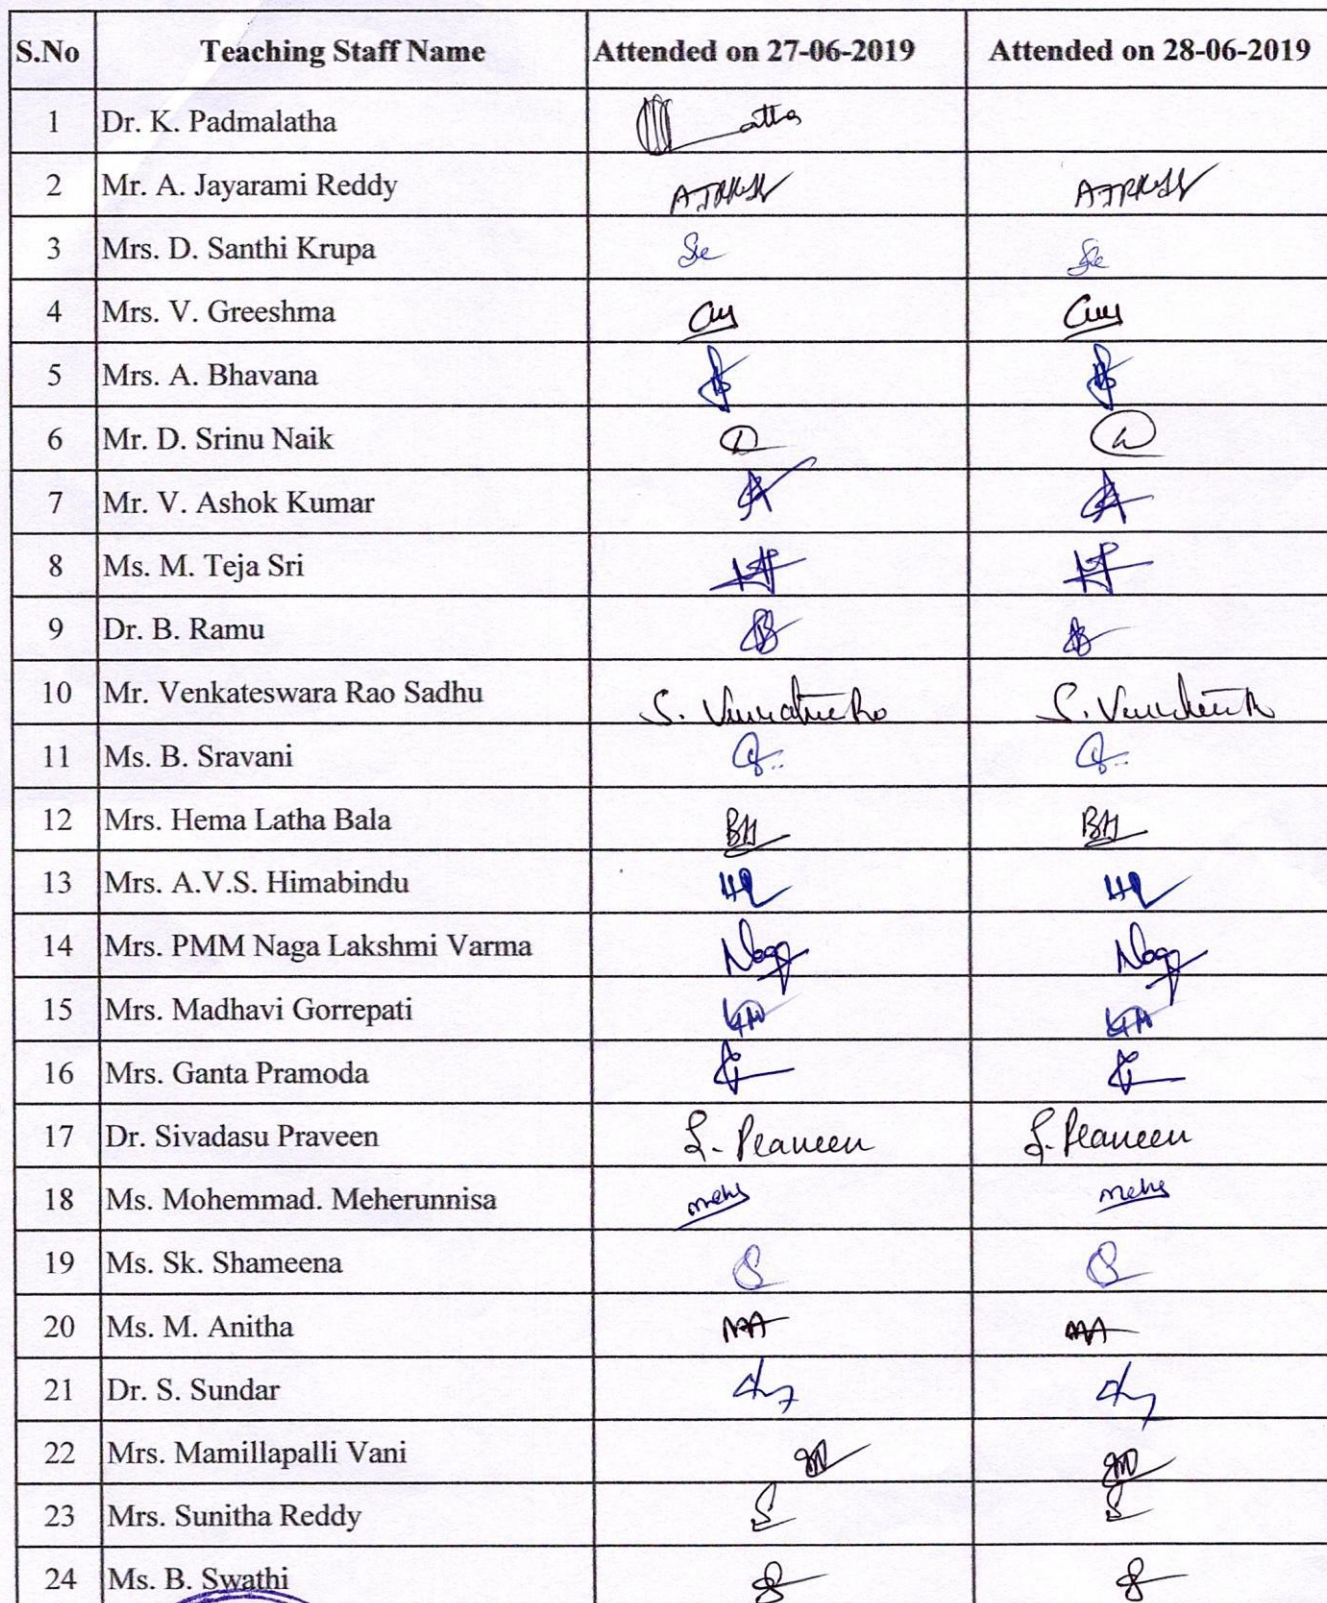 S.No Teaching Staff Name Attended on 27-06-2019 Attended on 28-06-2019
1 Dr. K. Padmalatha
2 Mr. A. Jayarami Reddy
3 Mrs. D. Santhi Krupa
4 Mrs. V. Greeshma
5 Mrs. A. Bhavana
6 Mr. D. Srinu Naik
7 Mr. V. Ashok Kumar
8 Ms. M. Teja Sri
9 Dr. B. Ramu
10 Mr. Venkateswara Rao Sadhu S. S.
11 Ms. B. Sravani
12 Mrs. Hema Latha Bala BH BH
13 Mrs. A.V.S. Himabindu
14 Mrs. PMM Naga Lakshmi Varma Naga Naga
15 Mrs. Madhavi Gorrepati
16 Mrs. Ganta Pramoda
17 Dr. Sivadasu Praveen S. Praveen S. Praveen
18 Ms. Mohemmad. Meherunnisa
19 Ms. Sk. Shameena
20 Ms. M. Anitha
21 Dr. S. Sundar
22 Mrs. Mamillapalli Vani
23 Mrs. Sunitha Reddy
24 Ms. B. Swathi